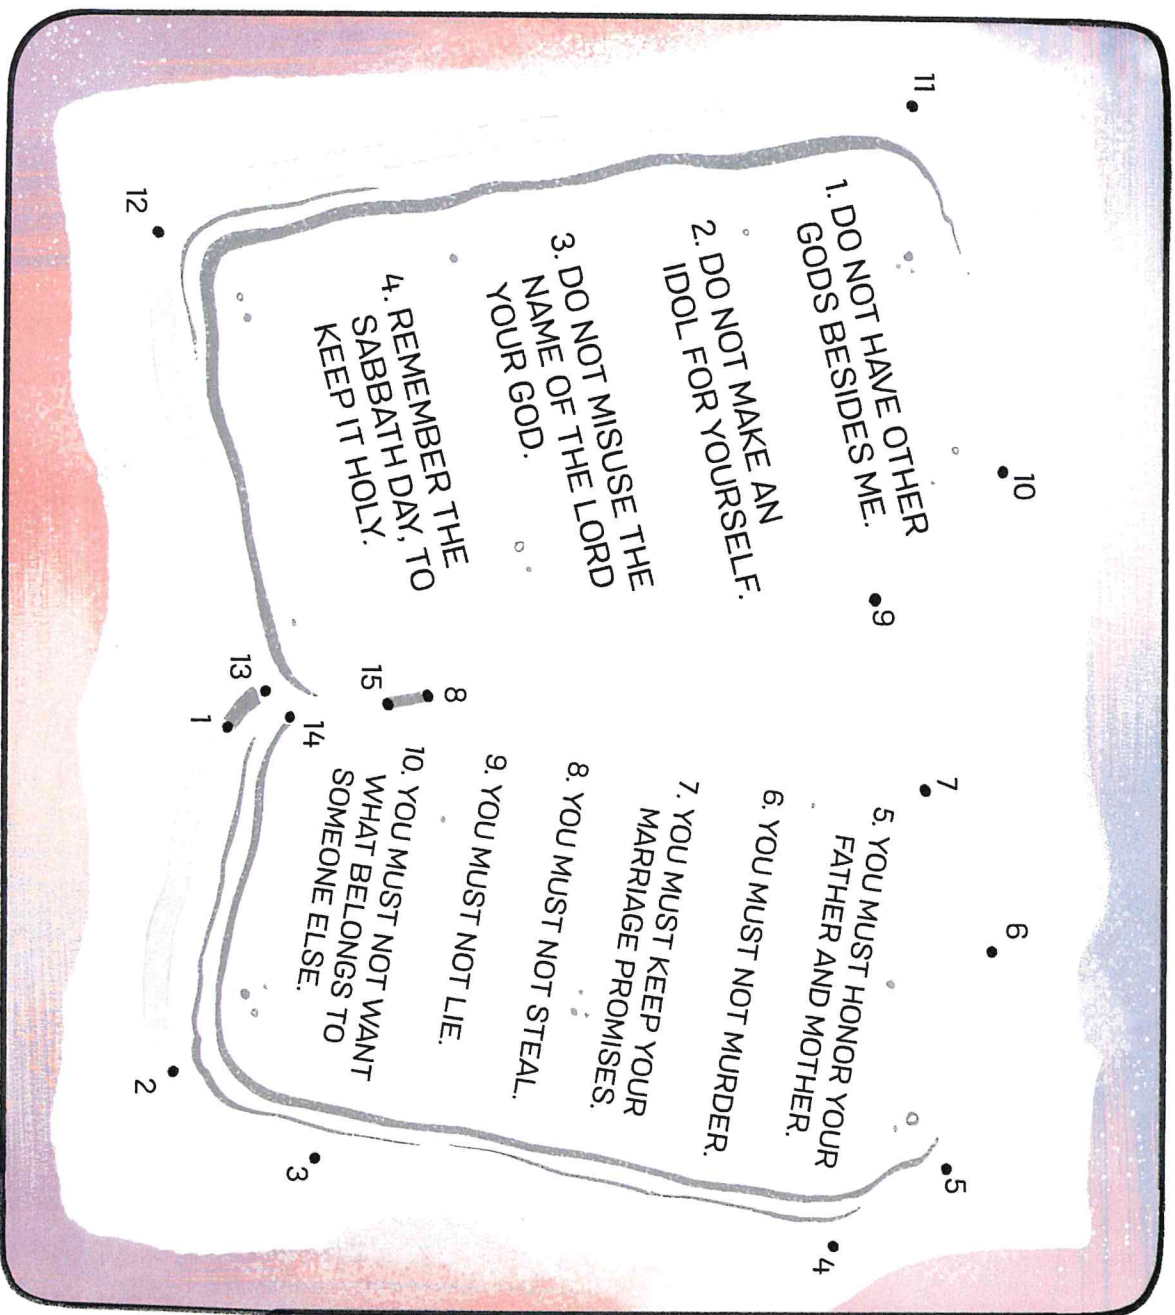 1. DO NOT HAVE OTHER
GODS BESIDES ME.
2. DO NOT MAKE AN
IDOL FOR YOURSELF.
3. DO NOT MISUSE THE
NAME OF THE LORD
YOUR GOD.
4. REMEMBER THE
SABBATH DAY, TO
KEEP IT HOLY.
5. YOU MUST HONOR YOUR
FATHER AND MOTHER.
6. YOU MUST NOT MURDER.
7. YOU MUST KEEP YOUR
MARRIAGE PROMISES.
8. YOU MUST NOT STEAL.
9. YOU MUST NOT LIE.
10. YOU MUST NOT WANT
WHAT BELONGS TO
SOMEONE ELSE.
11
10
9
7
6
5
4
12
13
1
14
15
8
2
3